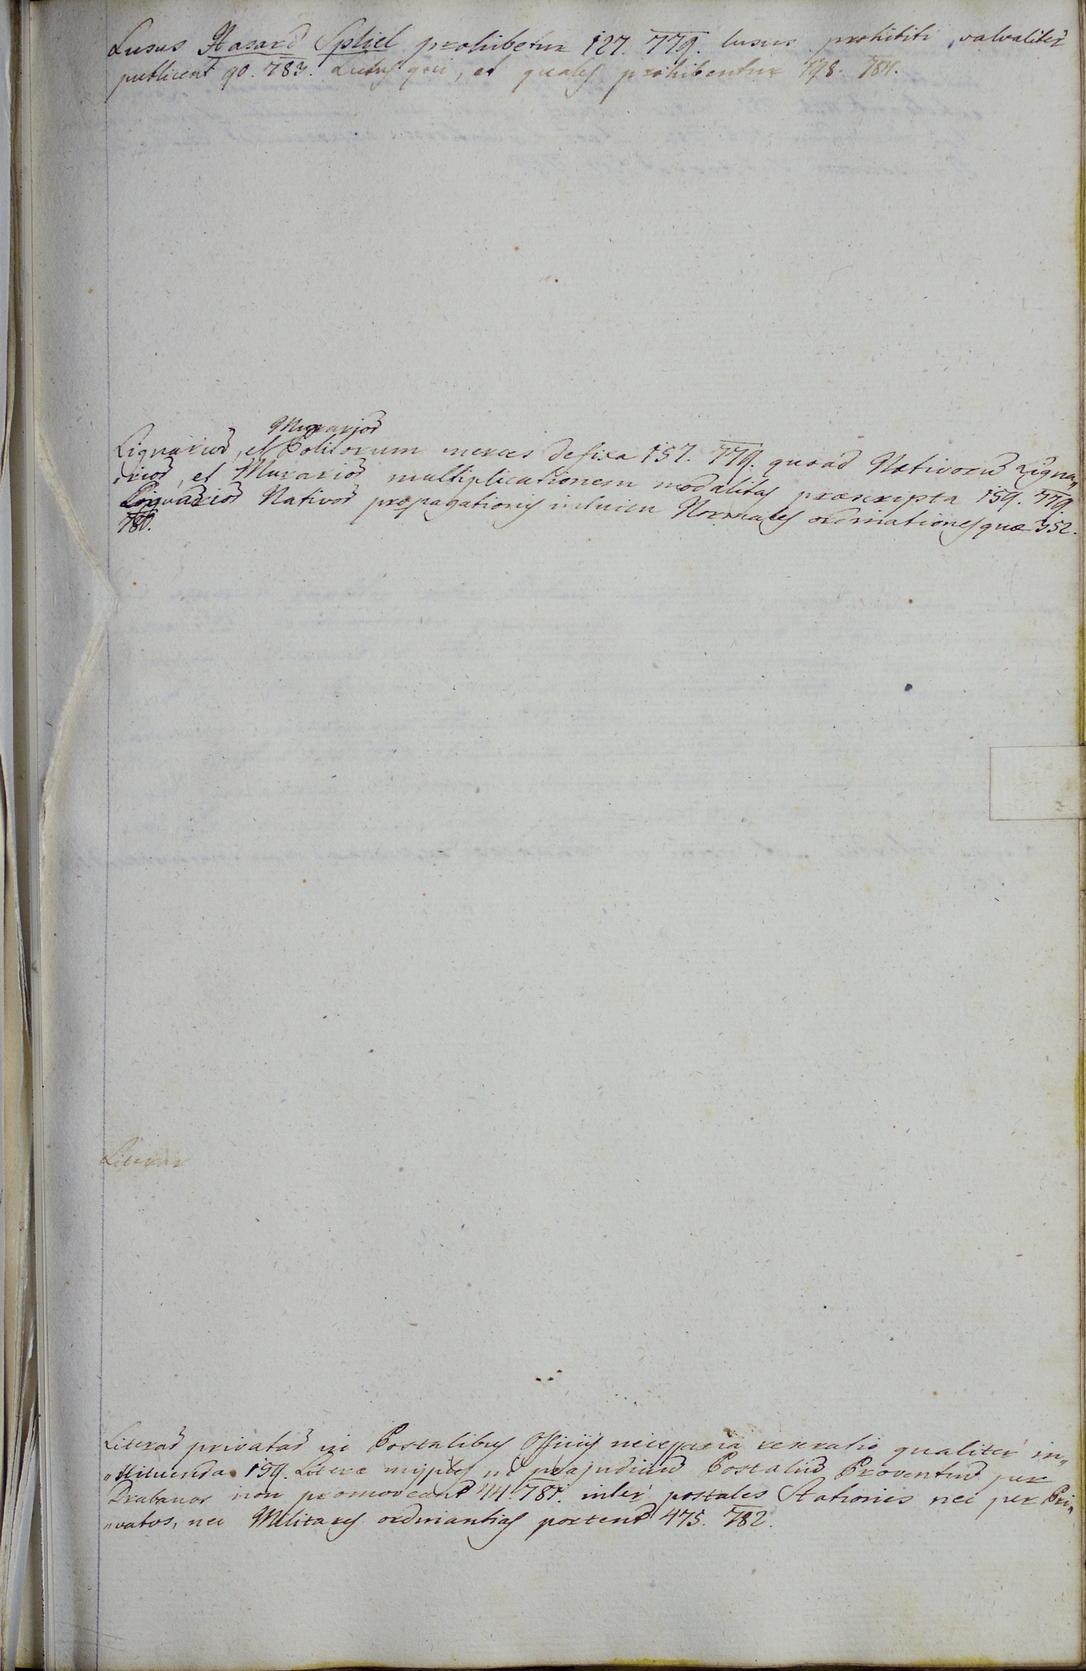 Lusus Hasard Spliel prohibetur 127. 779. lusus prohibiti, valvaliter
publicent 90. 783. Ludus qui, et quales prohibentur 198. 784.
Murariorũ
Lignariorũ, et Politorum merces defixa 157. 779. quoad Nativorũ Ligna„
„riorũ, et Murariorũ multiplicationem modalitas praescripta 159. 779.
Lignariorũ Nativorũ propagationis Normales ordinationes quae 352.
780.
Literae
Literarũ privatarũ in Postalibus Officiis necessaria reseratio qualiter in„
„stituenda 159. Literae ne praejudiciũ Postaliũ Proventuũ per
Drabanos non promoveant 44. 787. inter postales Stationes nec per Pri„
„vatos, nec Militares ordinantias portent 475. 782.